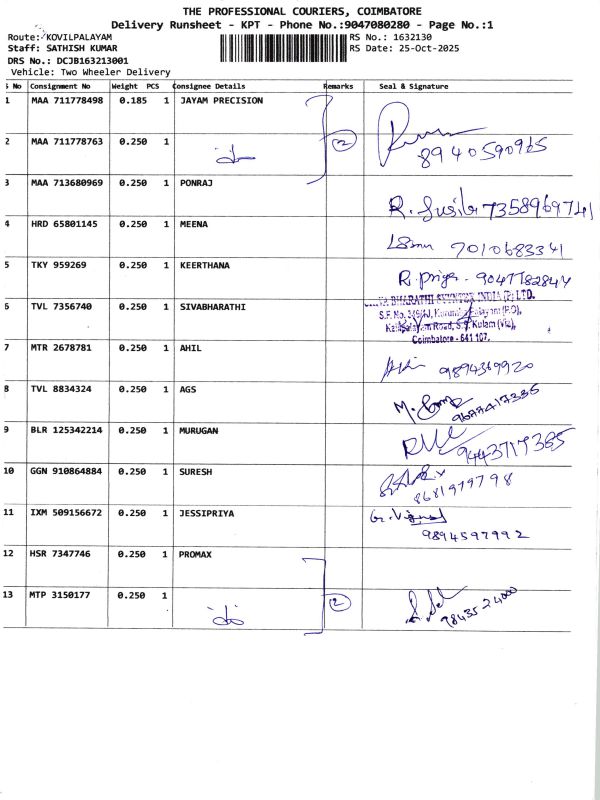 THE PROFESSIONAL COURIERS, COIMBATORE
Delivery Runsheet - KPT - Phone No.:9047080280 - Page No.:1
Route: KOVILPALAYAM RS No.: 1632130
Staff: SATHISH KUMAR RS Date: 25-Oct-2025
DRS No.: DCJB163213001
Vehicle: Two Wheeler Delivery
S No Consignment No Weight PCS Consignee Details Remarks Seal & Signature
1 MAA 711778498 0.185 1 JAYAM PRECISION
2 MAA 711778763 0.250 1 2 8940590965
3 MAA 713680969 0.250 1 PONRAJ R. 7358969741
4 HRD 65801145 0.250 1 MEENA 7010683341
5 TKY 959269 0.250 1 KEERTHANA R. Priya - 9047782844
6 TVL 7356740 0.250 1 SIVABHARATHI BHARATHI INDIA (P) LTD.
S.F. No.
Road, S.S. Kulam (Via),
Coimbatore - 641 107.
7 MTR 2678781 0.250 1 AHIL 9894369920
8 TVL 8834324 0.250 1 AGS M.
9 BLR 125342214 0.250 1 MURUGAN 9443717385
10 GGN 910864884 0.250 1 SURESH 8681979798
11 IXM 509156672 0.250 1 JESSIPRIYA
9894597992
12 HSR 7347746 0.250 1 PROMAX
13 MTP 3150177 0.250 1 2 9843524000